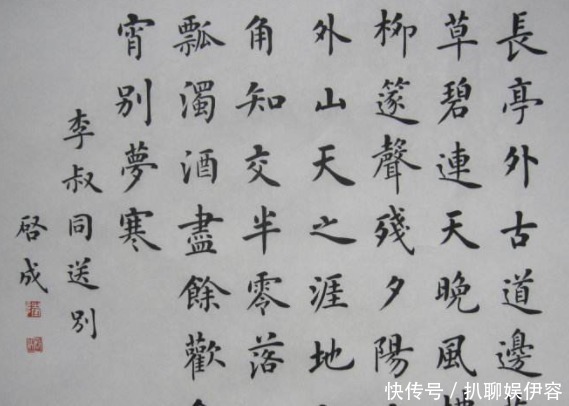 長亭外古道邊
草碧連天晚風
柳篴聲殘夕陽
外山天之涯地
角知交半零落
瓢濁酒盡餘歡
宵别夢寒
李叔同送别
啓成
快传号/扒聊娱伊容